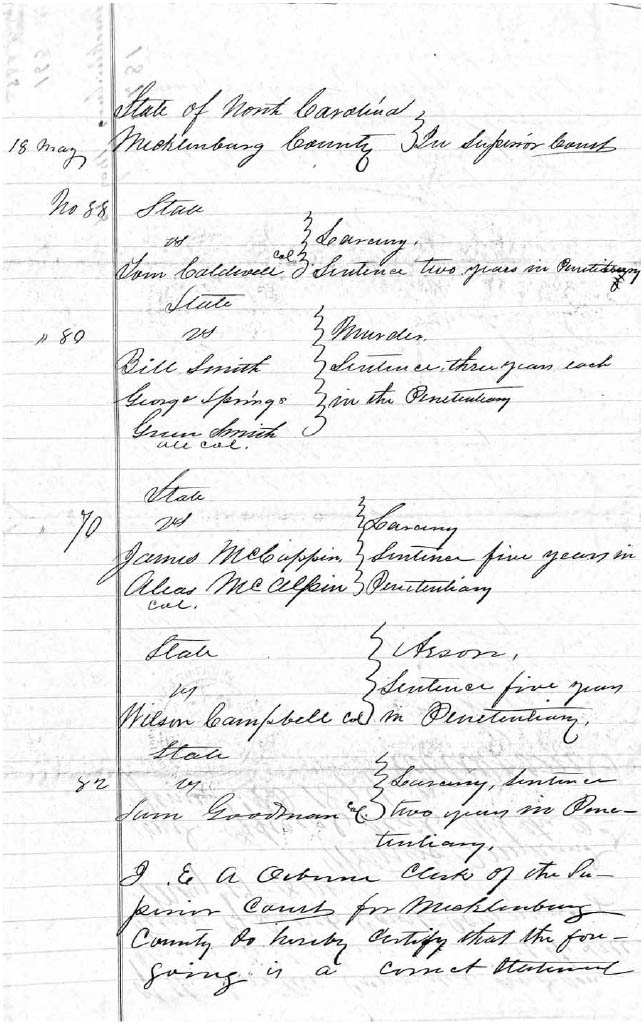 State of North Carolina
18 May Mecklenburg County } In Superior Court
No 88 State
vs } Larceny.
Tom Caldwell col } Sentence two years in Penetentiary
State
" 80 vs } Murder.
Bill Smith } Sentence, three years each
George Springs } in the Penetentiary
Green Smith
all col.
State
" 70 vs } Larceny
James McCappin, } Sentence five years in
Aleas McAlpin } Penetentiary
col.
State } Arson,
vs } Sentence five years
Wilson Campbell col } in Penetentiary.
State
82 vs } Larceny, Sentence
Sam Goodman col. } two years in Pene-
tentiary.
I. E A Osborne Clerk of the Su-
perior Court for Mecklenburg
County do hereby certify that the fore-
going is a correct statement